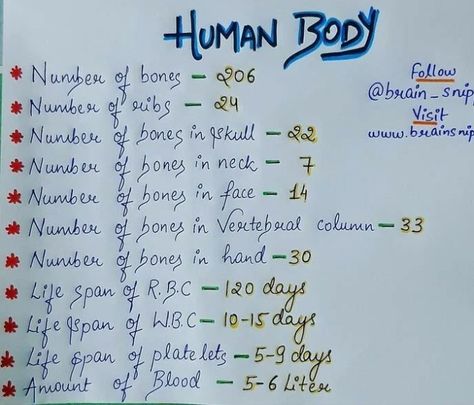 HUMAN BODY
* Number of bones - 206
* Number of ribs - 24
* Number of bones in skull - 22
* Number of bones in neck - 7
* Number of bones in face - 14
* Number of bones in Vertebral column - 33
* Number of bones in hand - 30
* Life span of R.B.C - 120 days
* Life span of W.B.C - 10-15 days
* Life span of platelets - 5-9 days
* Amount of Blood - 5-6 Liter
Follow
@brain_snip
Visit
www.brainsnip